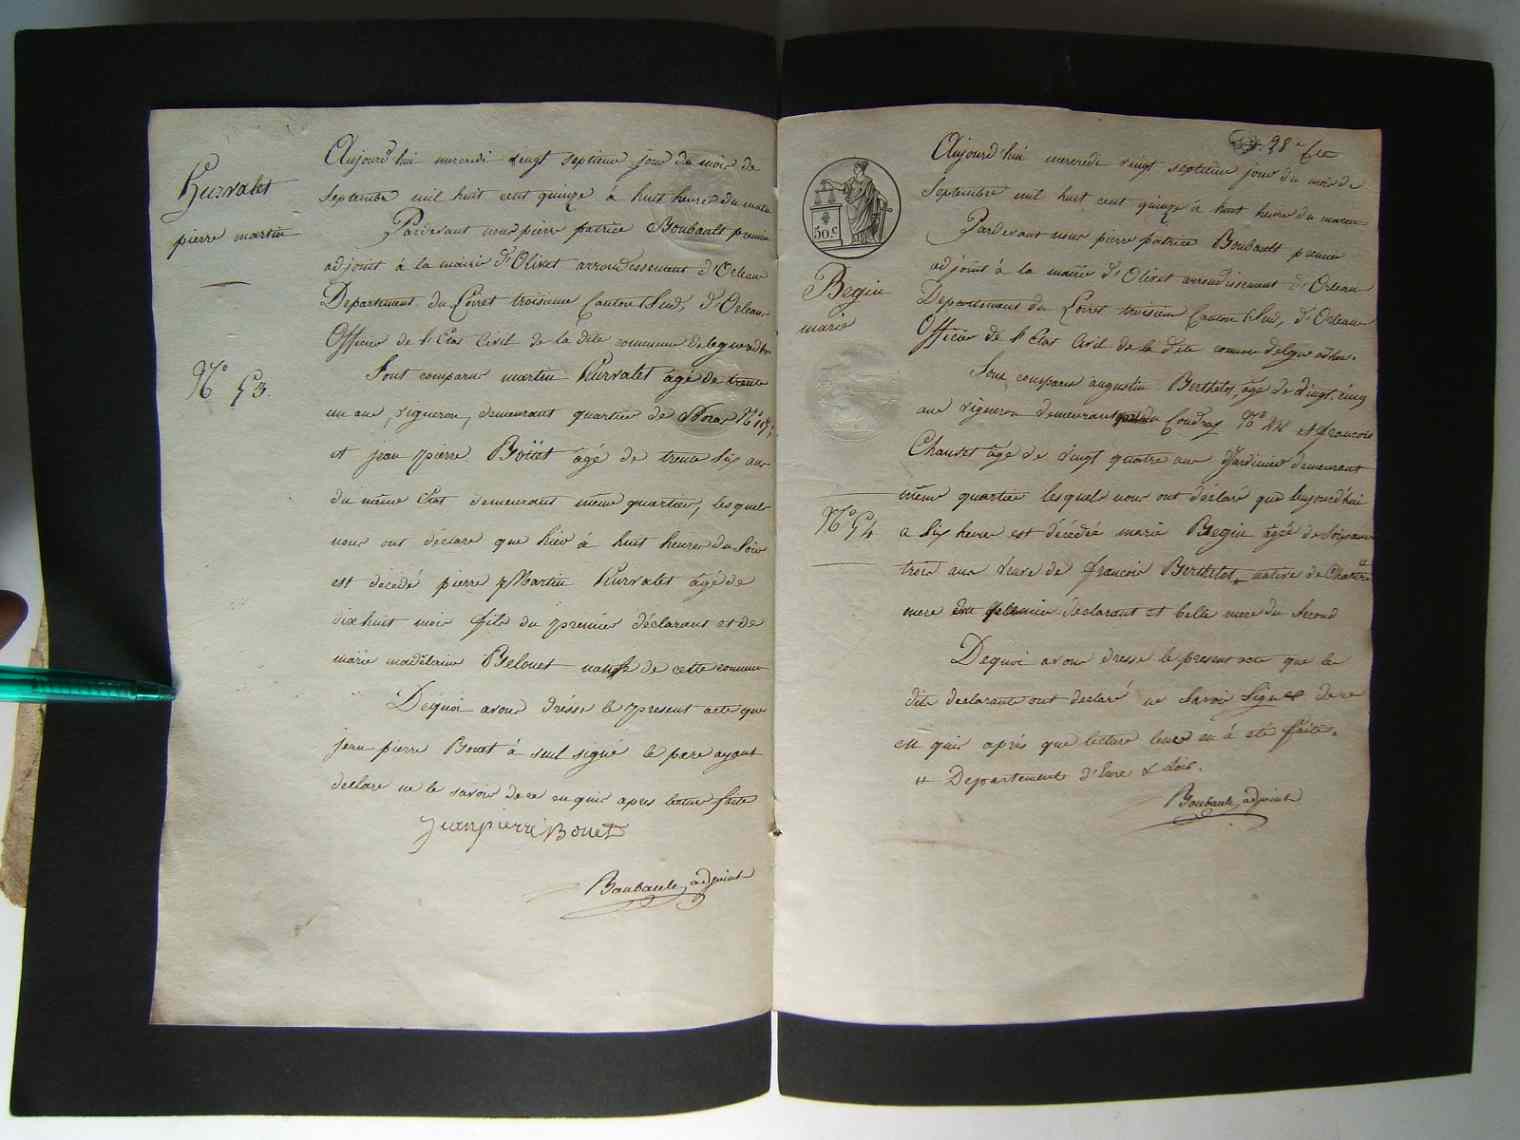 Hurvalet
pierre martin
N.o 53.
Aujourd'hui mercredi vingt septieme jour du mois de
Septembre mil huit cent quinze à huit heures du matin
Pardevant nous pierre patrice Boubault premier
adjoint à la mairie d'Olivet arrondissement d'Orleans
Departement du Loiret troisieme Canton Sud, d'Orleans
Officier de l'Etat Civil de la dite commune
Sont comparu martin Hurvalet agé de trente
un ans, vigneron, demeurant quartier de N.o
et jean pierre Boüet agé de trente Six ans
du même Etat demeurant même quartier, lesquels
nous ont déclaré que hier à huit heures du Soir
est décédé pierre Martin Hurvalet agé de
dix huit mois fils du premier déclarant et de
marie madelaine Belouet natif de cette commune
Dequoi avons dréssé le present acte que
jean pierre Bouet à seul signé le pere ayant
déclaré ne le savoir de ce enquis apres lecture faite
Jean pierre Bouet
Boubault, adjoint
28e
50 c.
Begin
marie
N.o 54
Aujourd'hui mercredi vingt septieme jour du mois de
Septembre mil huit cent quinze à huit heure du matin
Pardevant nous pierre patrice Boubault premier
adjoint à la mairie d'Olivet arrondissement d'Orleans
Departement du Loiret troisieme Canton Sud, d'Orleans
Officier de l'Etat Civil de la dite commune
Sont comparus augustin Berthelot, agé de vingt-cinq
ans vigneron demeurant Coudray N.o et françois
Chauvet agé de vingt quatre ans Jardinier demeurant
même quartier lesquels nous ont déclaré que aujourd'hui
a Six heure est décédée marie Begin agée de Soixante
trois ans veuve de françois Berthelot, native de Chartres "
mere du premier déclarant et belle mere du Second
Dequoi avons dressé le present acte que les
dits declarants ont declaré ne Savoir Signer de ce
enquis aprés que lecture leur en à été faite.
" Departement d'Eure & Loir.
Boubault, adjoint